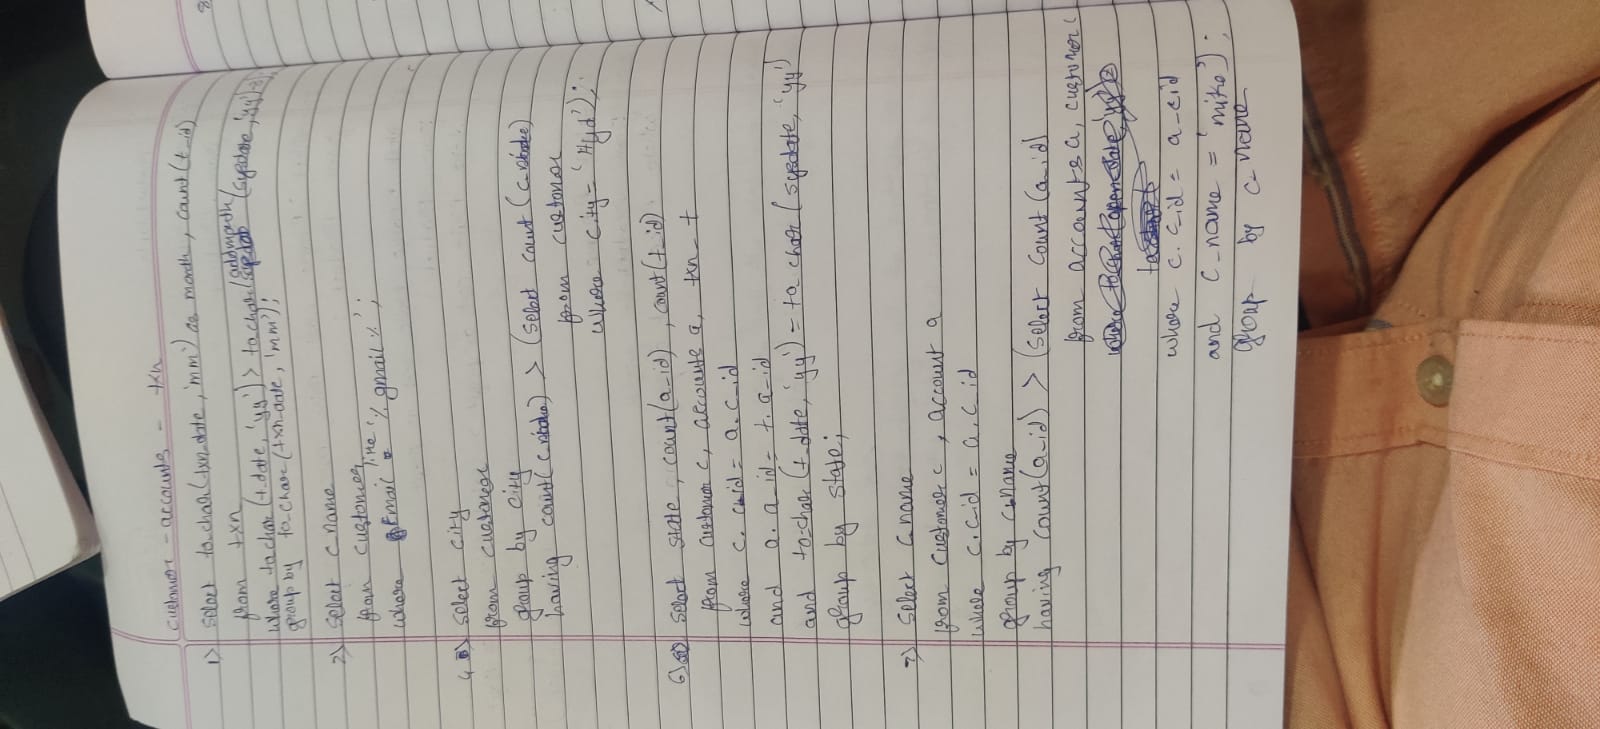 customer - accounts - txn
1) select to_char(txn_date, 'mm') as month, count(t_id)
from txn
where to_char(t_date, 'yy') > to_char(addmonth(sysdate, 'yy')
group by to_char(txn_date, 'mm');
2) select c_name
from customer
where Email like '% gmail %';
4) select city
from customer
group by city
having count( ) > (select count(
from customer
where city = 'Hyd');
6) select state, count(a_id), count(t_id)
from customer c, accounts a, txn t
where c.c_id = a.c_id
and a.a_id = t.a_id
and to_char(t_date, 'yy') = to_char(sysdate, 'yy')
group by state;
7) select c_name
from customer c, account a
where c.c_id = a.c_id
group by c_name
having count(a_id) > (select count(a_id)
from accounts a, customer c
where c.c_id = a_cid
and c_name = 'mike');
group by c_name